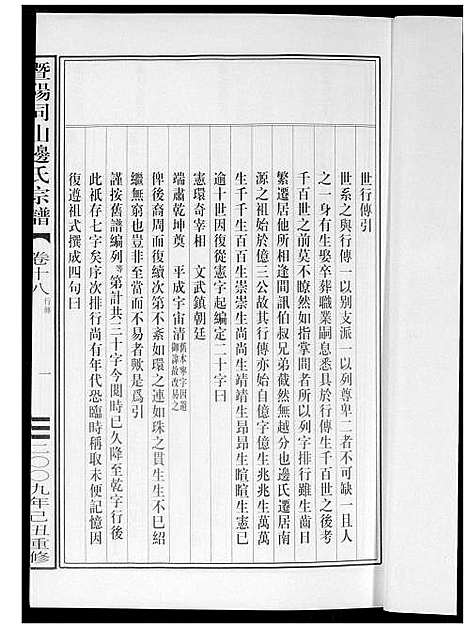 世行傳引
世系之與行傳一以別支派一以列尊卑二者不可缺一且人
之一身有生娶卒葬職業嗣息悉具於行傳生千百世之後考
千百世之前莫不瞭然如指掌間者所以列字排行雖生齒日
繁遷居他所相逢間訊伯叔兄弟截然無越分也邊氏遷居南
源之祖始於億三公故其行傳亦始自億字億生兆兆生萬萬
生千千生百百生崇崇生尚尚生靖靖生昂昂生暄暄生憲已
逾十世因復從憲字起編定二十字曰
憲環奇宰相 文武鎮朝廷
端肅乾坤奠 平成宇宙清舊本寧字因避御諱故改易之
俾後裔周而復續次第不紊如環之連如珠之貫生生不已紹
繼無窮也豈非至當而不易者歟是爲引
謹按舊譜編列等第計共三十字今閱時已久降至乾字行後
此祇存七字矣序次排行尚有年代恐臨時稱取未便記憶因
復遵祖式撰成四句曰
暨陽同山邊氏宗譜
卷十八
行傳
一
二〇〇九年己丑重修